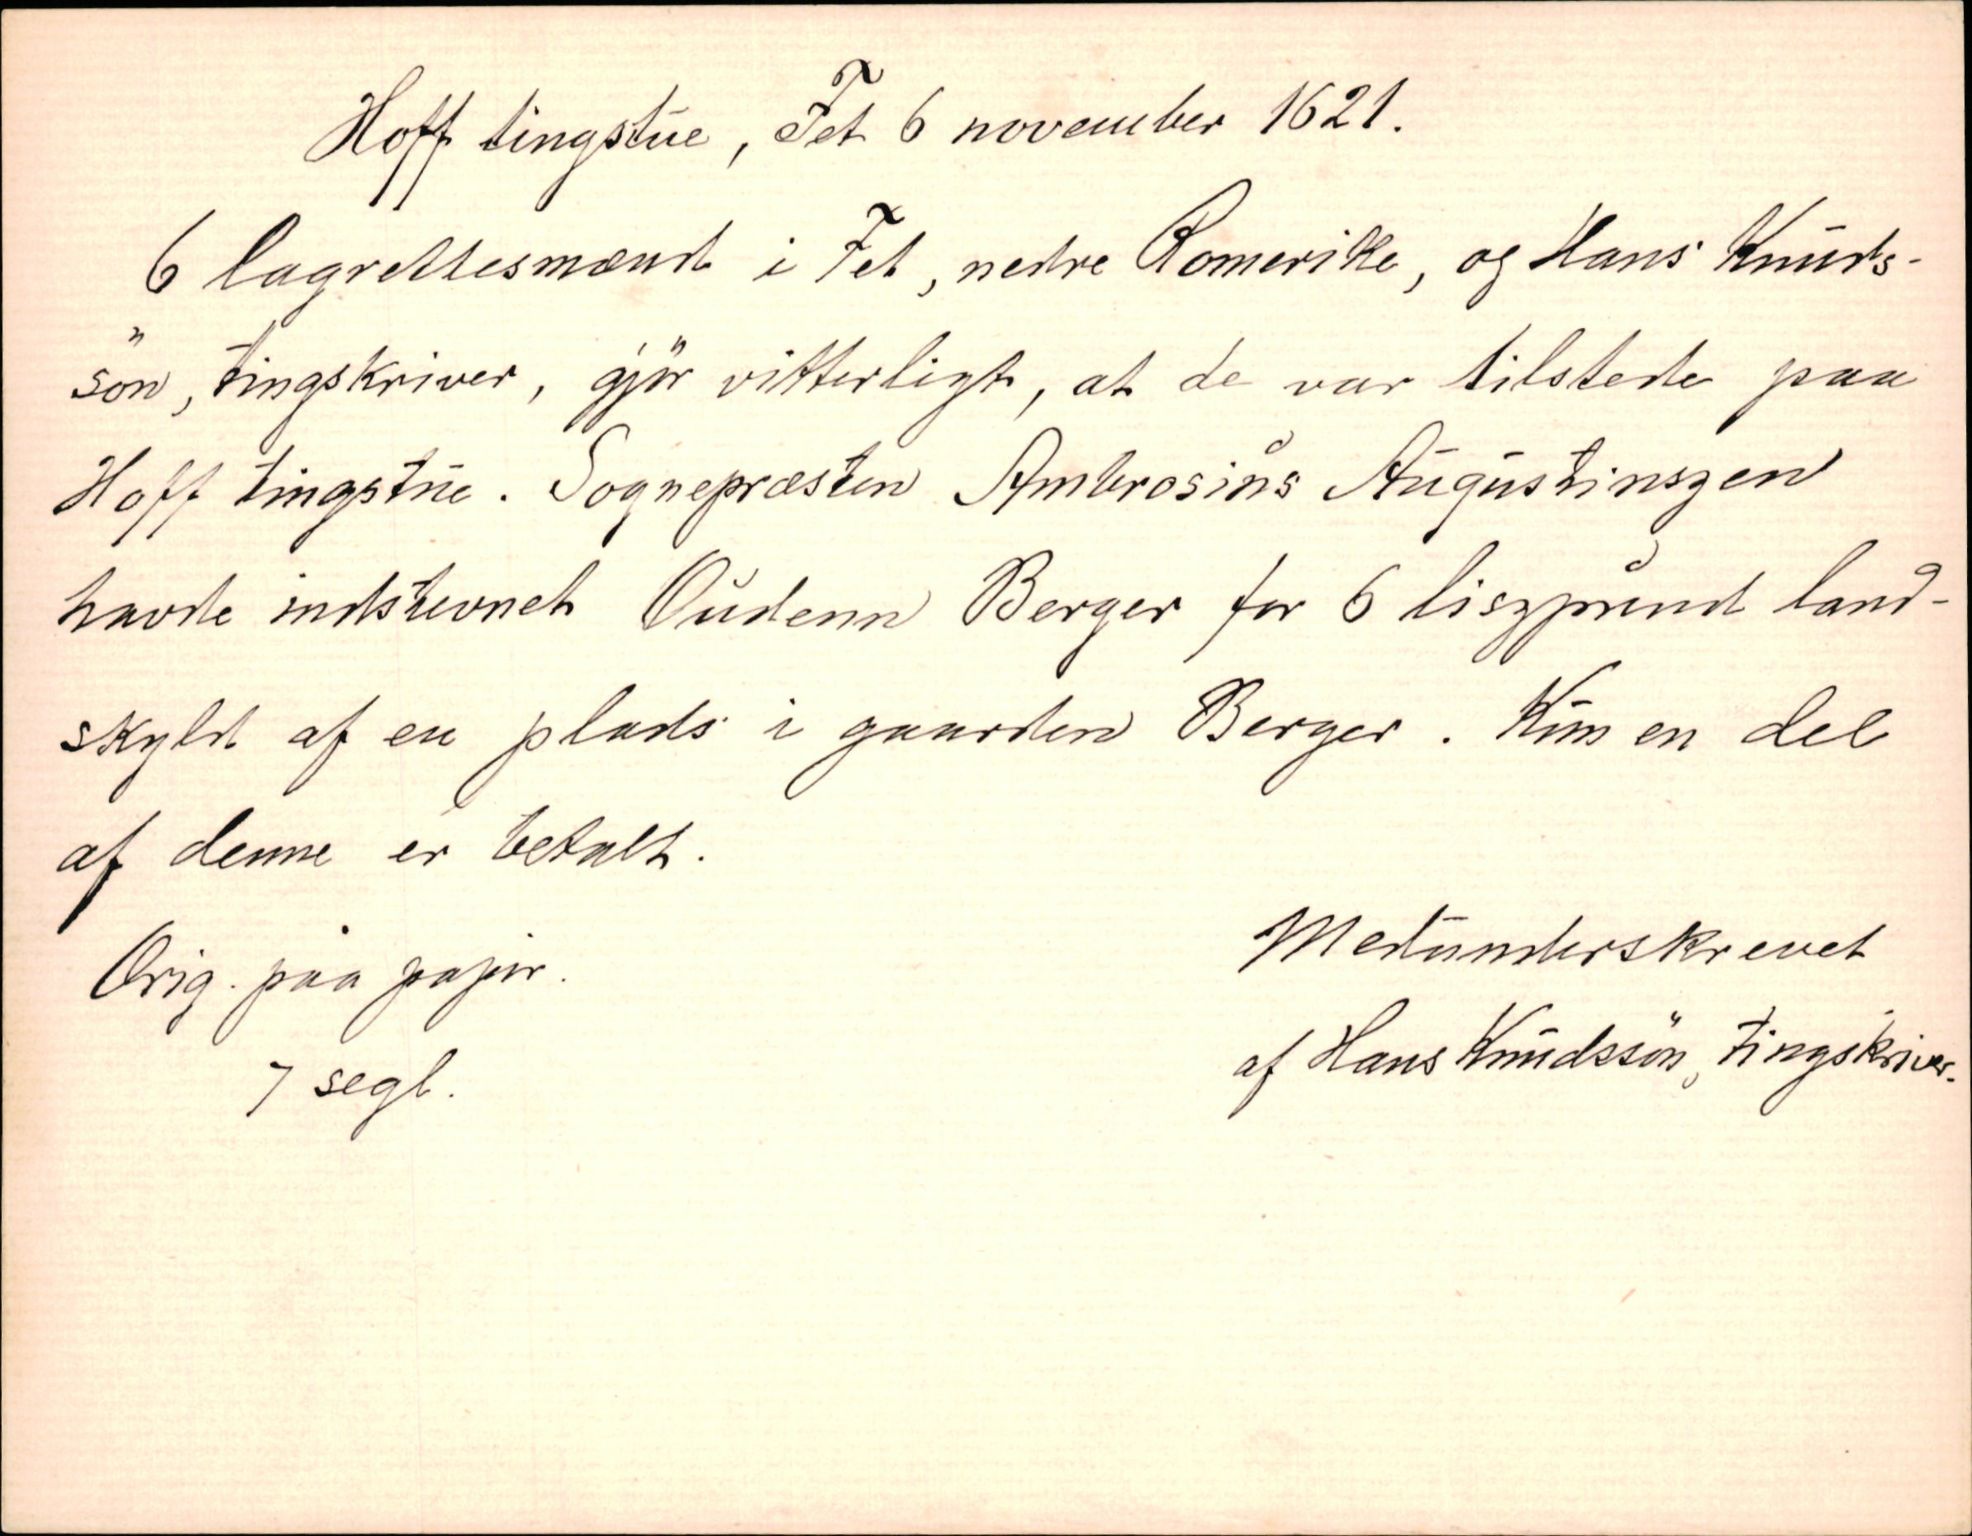 Hoff tingstue, Fet 6 november 1621.
6 lagrettesmænd i Fet, nedre Romerike, og Hans Knuds-
sön, tingskriver, gjör vitterligt, at de var tilstede paa
Hoff tingstue. Sognepræsten Ambrosius Augustinszen
havde indstevnet Oudenn Berger for 6 liszpund land-
skyld af en plads i gaarden Berger. Kun en del
af denne er betalt.
Orig. paa papir.
7 segl.
Medunderskrevet
af Hans Knudssön, tingskriver.